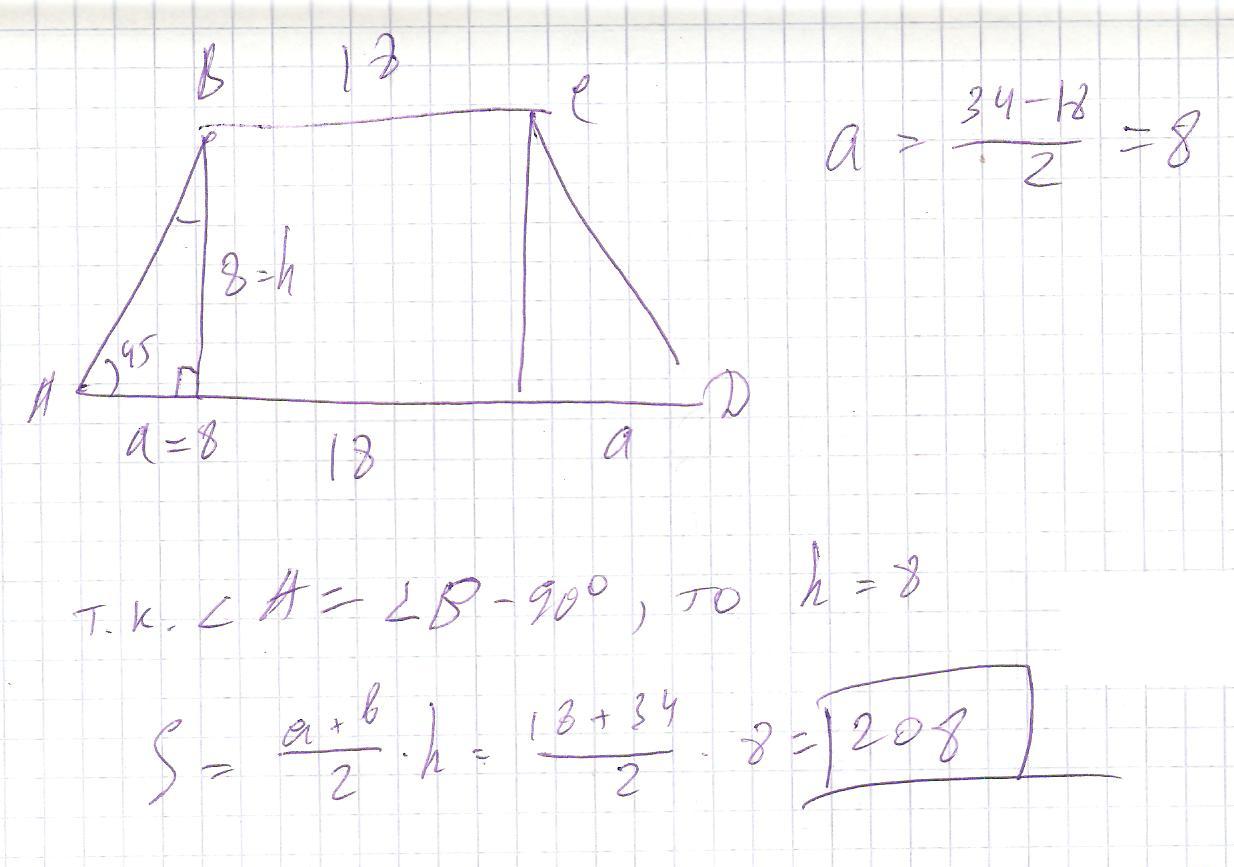 B 18 C
a = \frac{34-18}{2} = 8
8=h
45
A D
a=8 18 a
т.к. ∠A = ∠B - 90°, то h = 8
S = \frac{a+b}{2} · h = \frac{18+34}{2} · 8 = 208